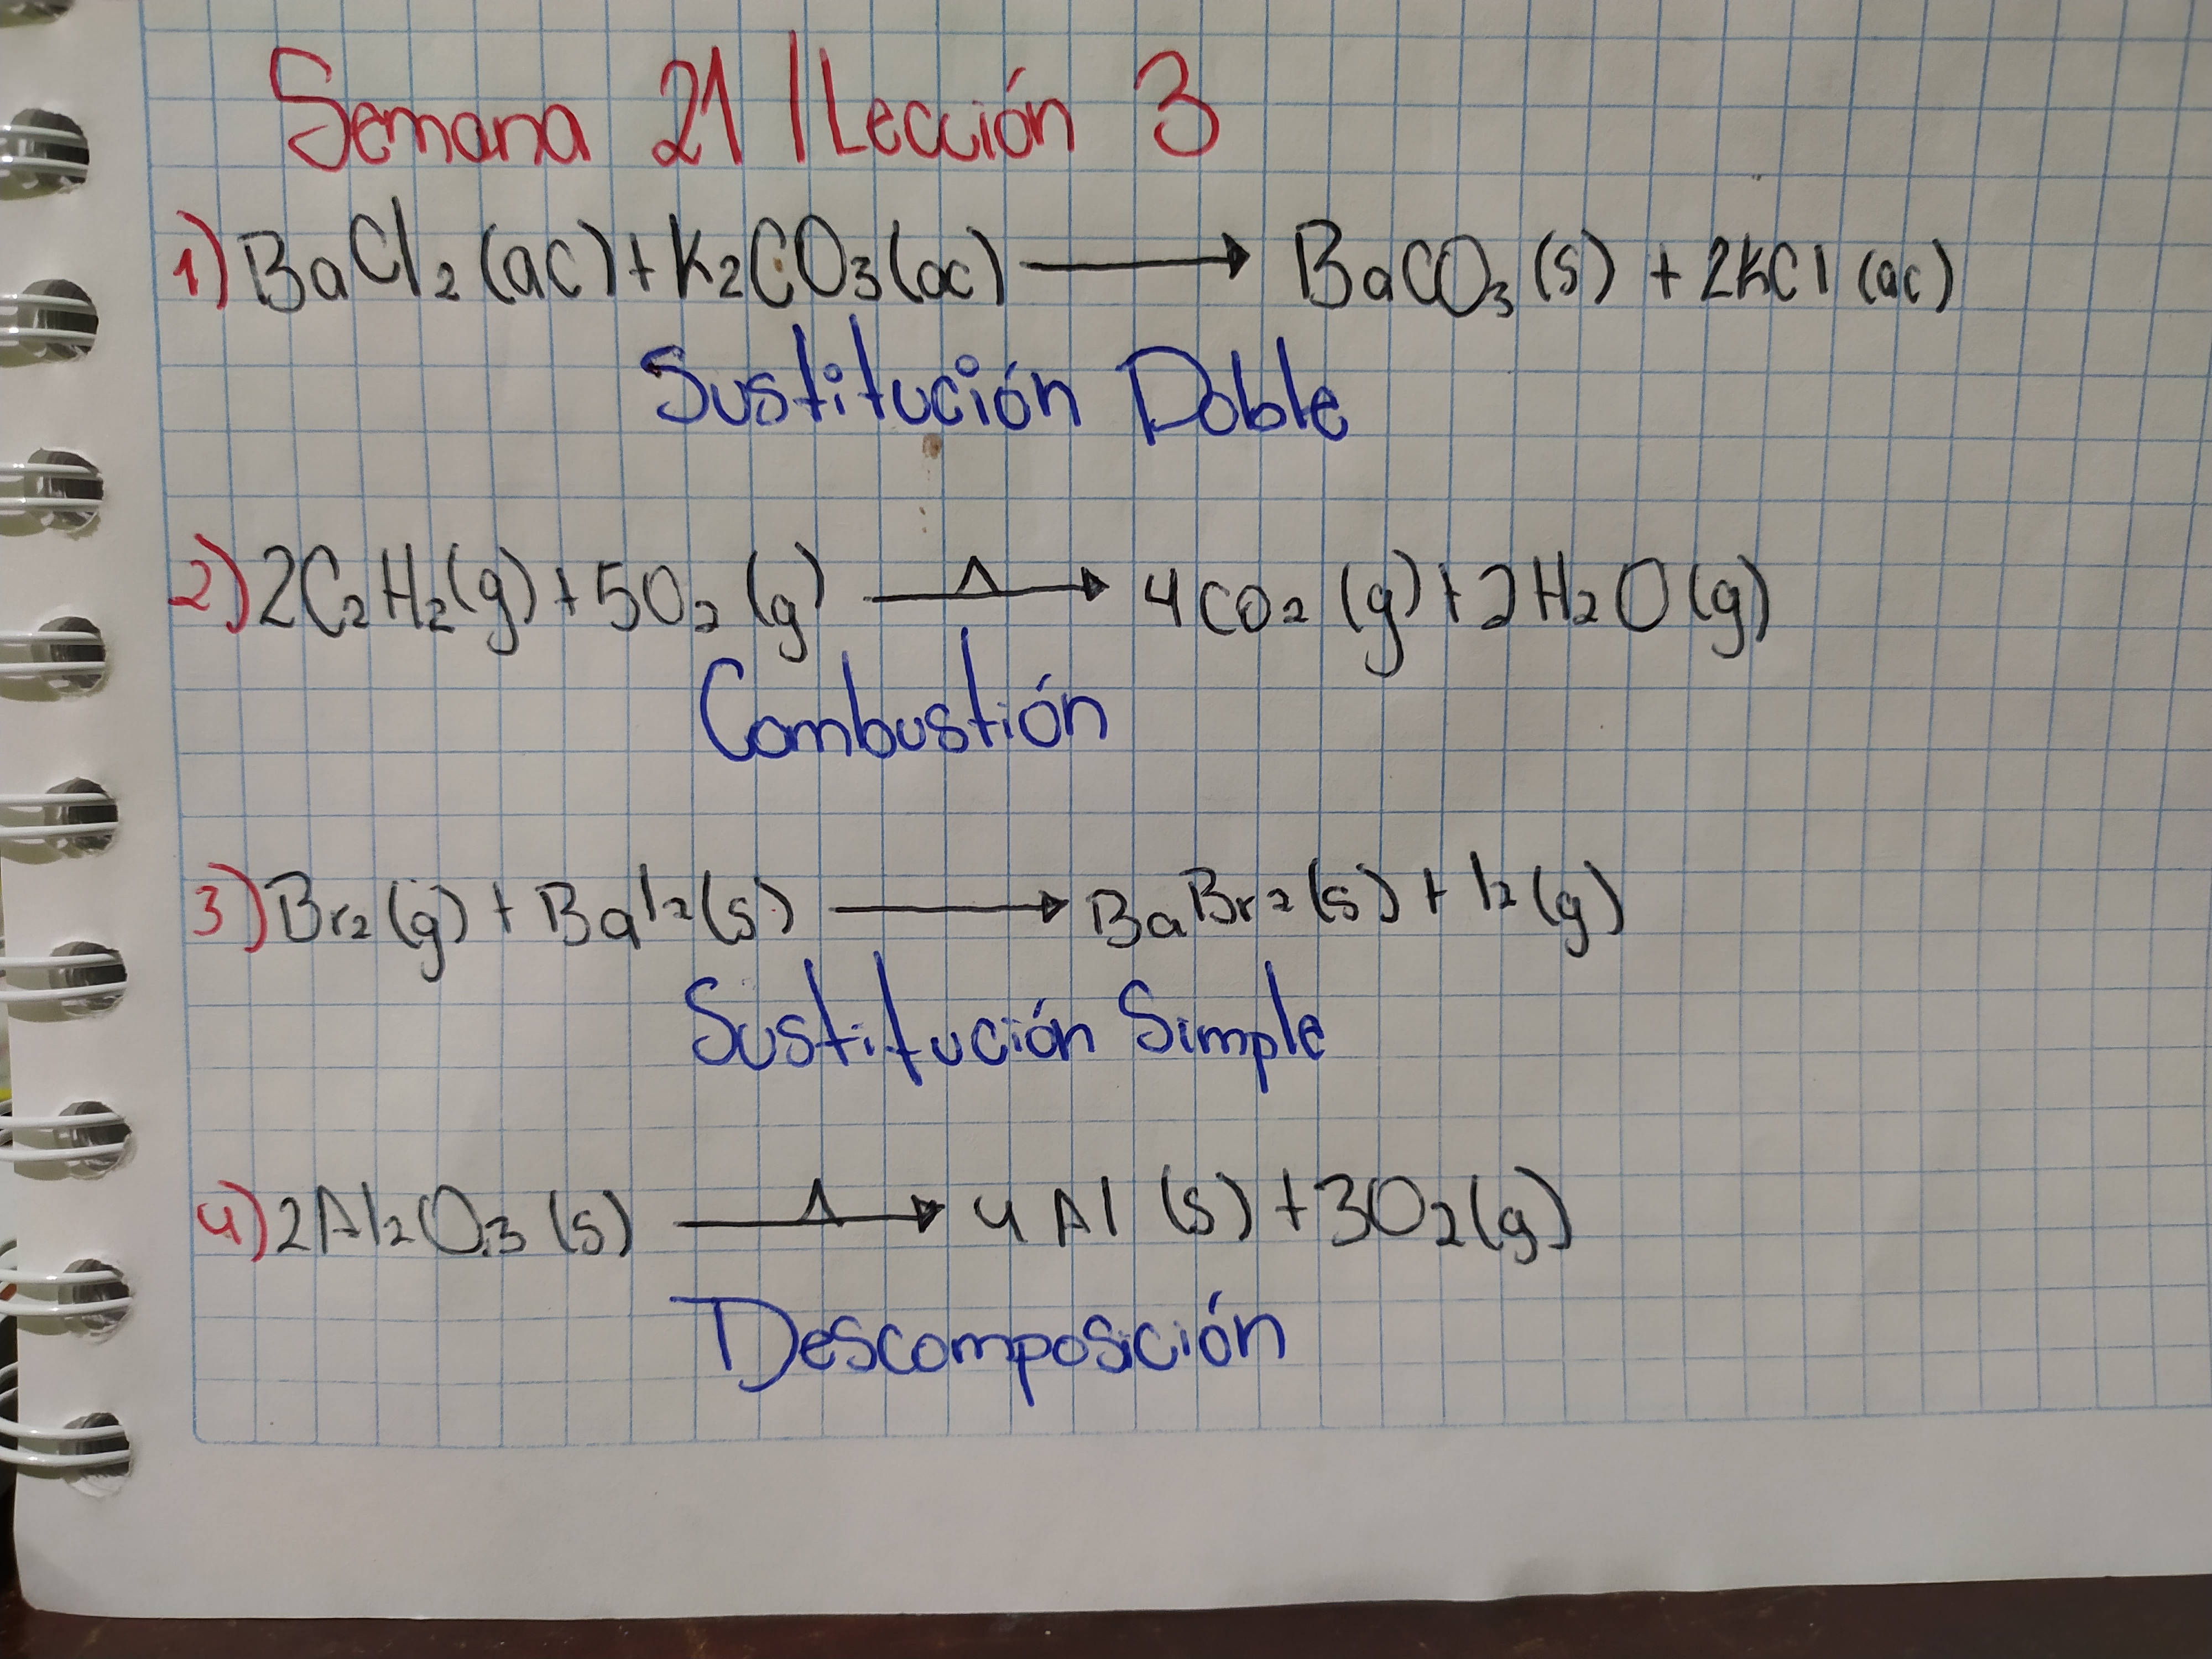 Semana 21 | Lección 3
1) BaCl₂ (ac) + K₂CO₃ (ac) → BaCO₃ (s) + 2KCl (ac)
Sustitución Doble
2) 2C₂H₂ (g) + 5O₂ (g) Δ→ 4CO₂ (g) + 2H₂O (g)
Combustión
3) Br₂ (g) + BaI₂ (s) → BaBr₂ (s) + I₂ (g)
Sustitución Simple
4) 2Al₂O₃ (s) Δ→ 4Al (s) + 3O₂ (g)
Descomposición